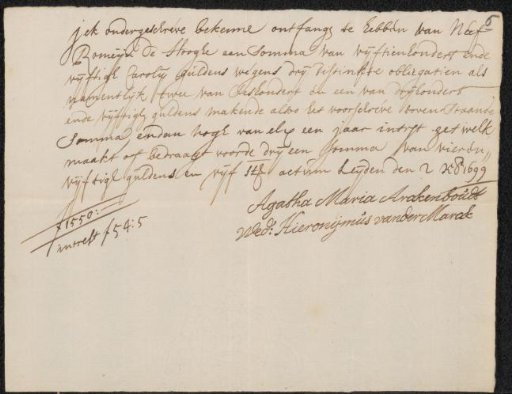 6
jck ondergeschreve bekenne ontfangs te hebben van Neef
Romeijn de Hooghe een somma van vijftienhondert ende
vijftigh Caroly guldens wegens drij distinkte obligatien als
namentlijk twee van seshondert en een van drijhondert
ende vijftigh guldens makende alsoo het voorschreve boven staande
Somma, en dan nogh van elx een jaar intrest het welk
maakt of bedraagt voor de drij een somma van vieren
vijftigh guldens en vijf st actum Leyden den 2 xb 1699
Agatha Maria Arckenboudt
Wed: Hieronijmus vander Marck
f1550:-
interest f54:5